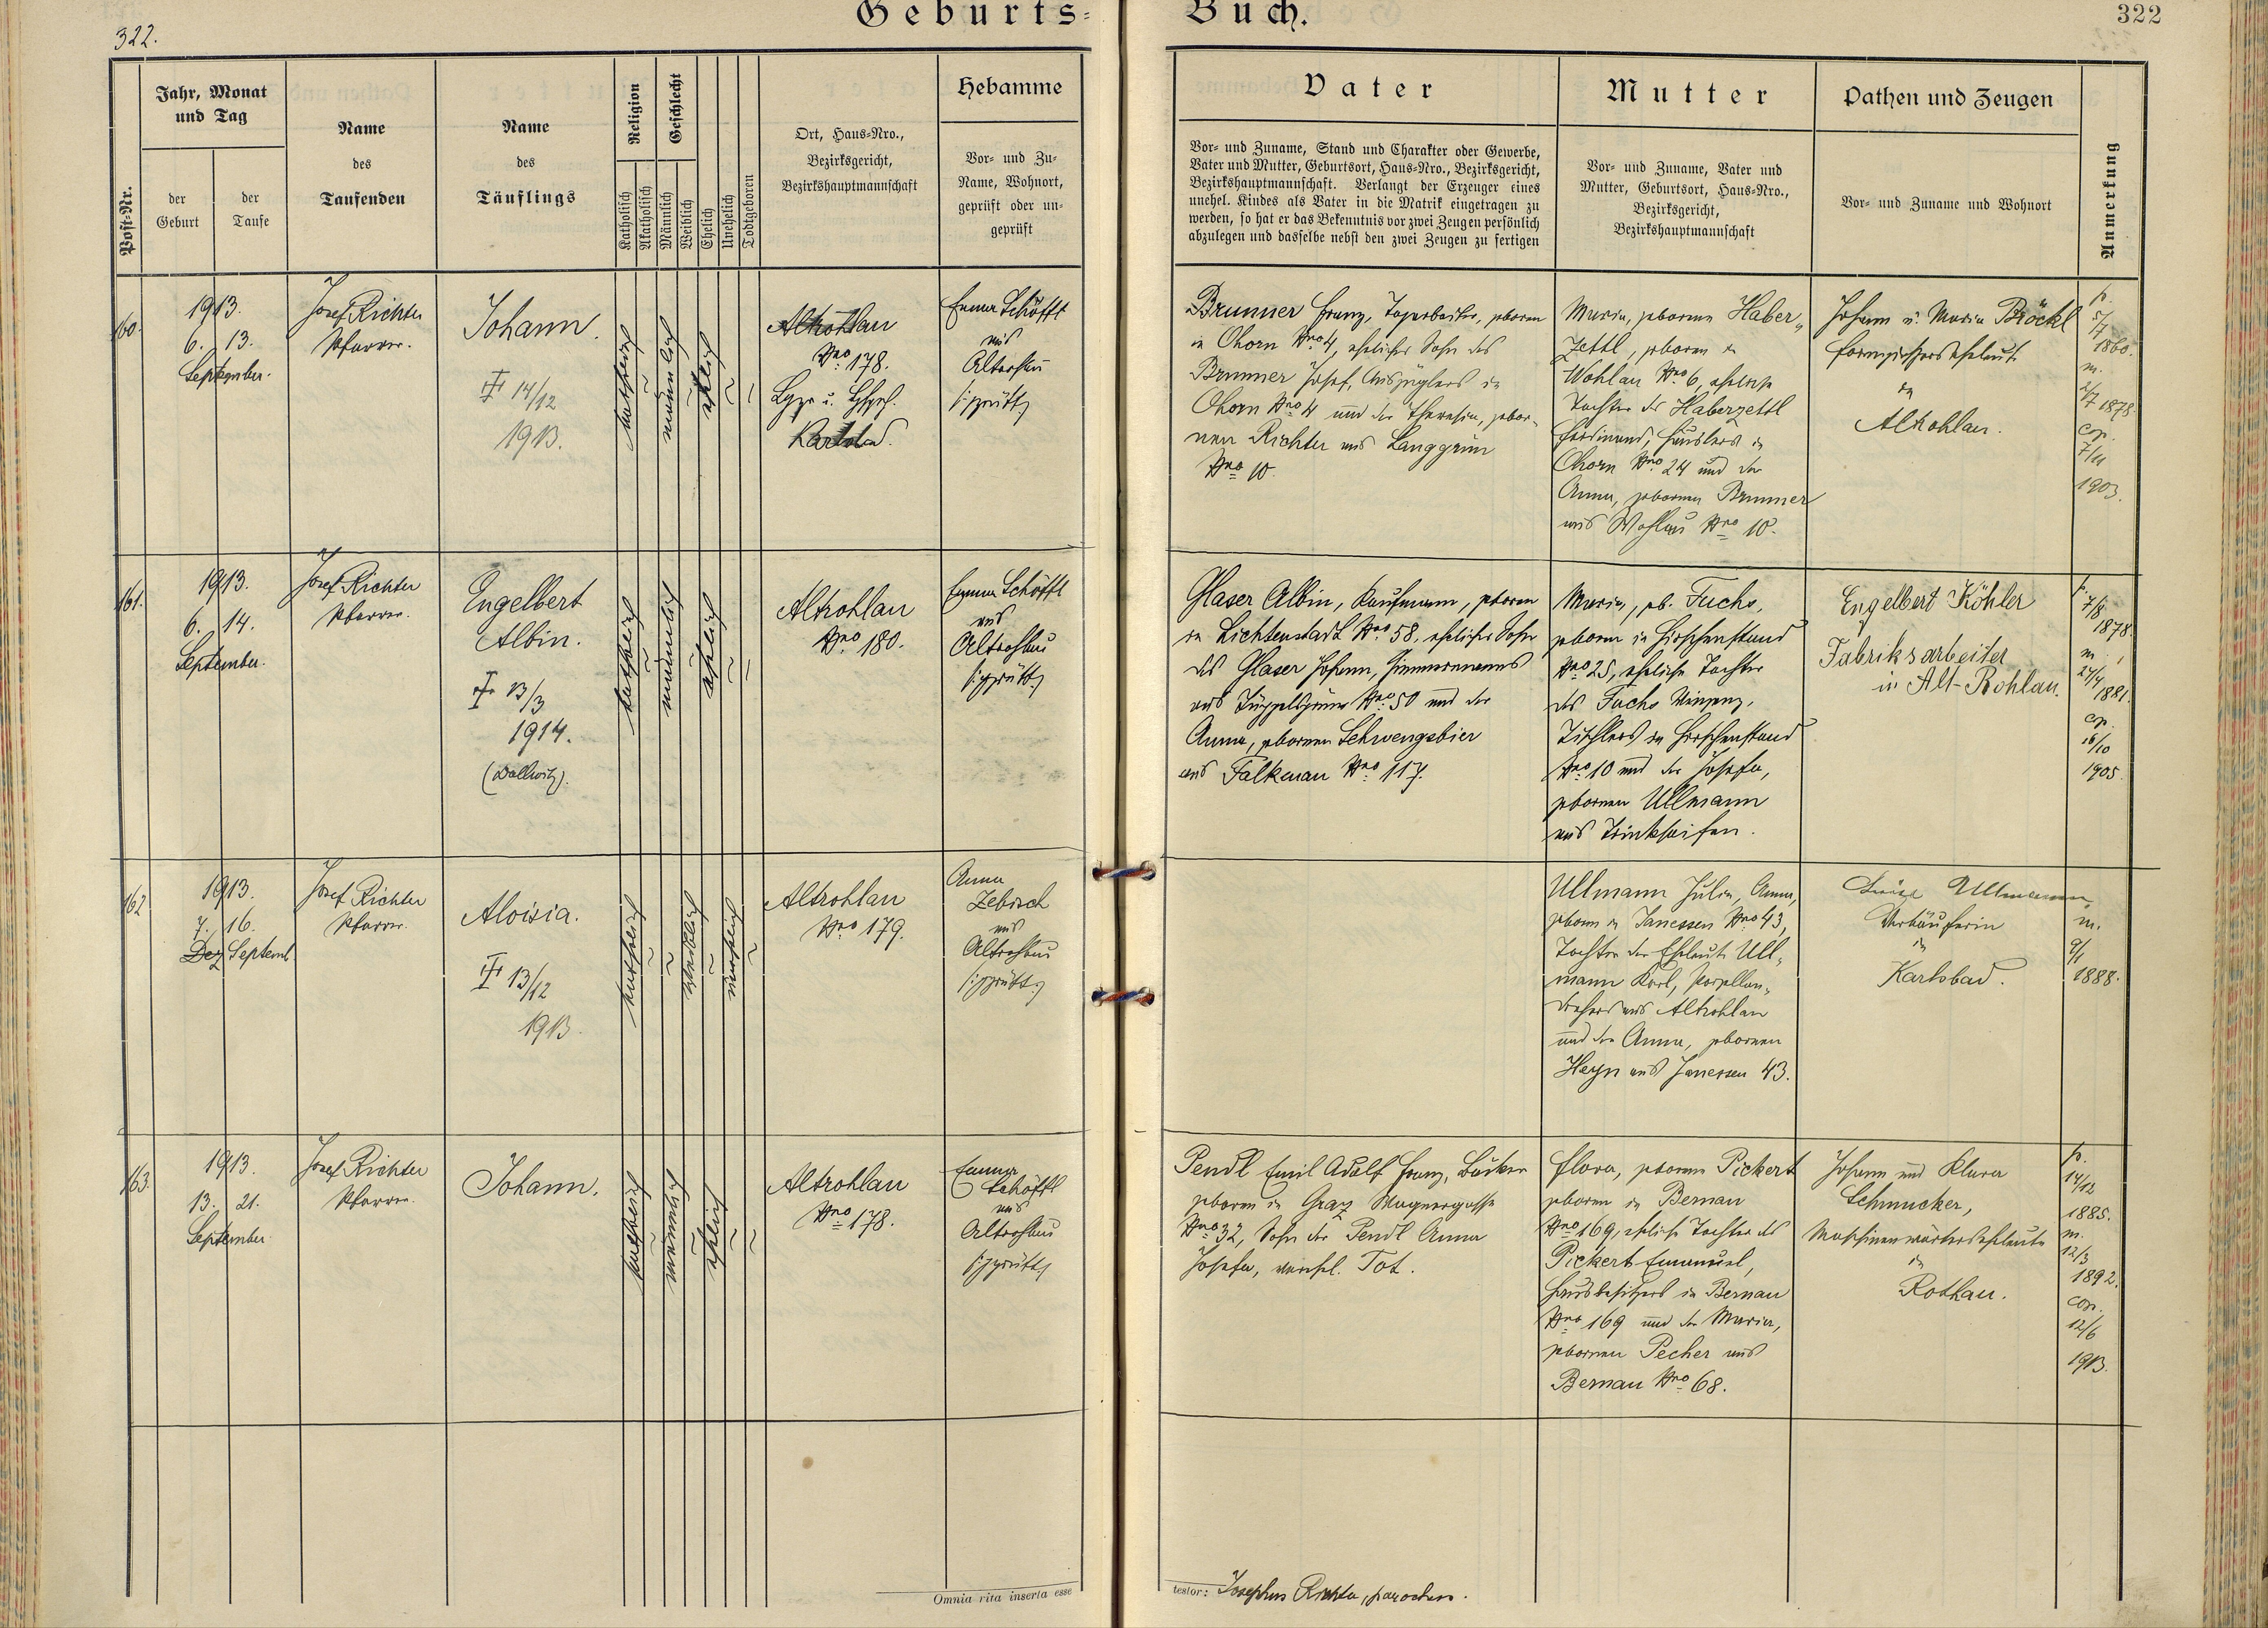 Geburts=
Buch.
322.
322
Post=Nr.
Jahr, Monat
und Tag
der
Geburt
der
Taufe
Name
des
Taufenden
Name
des
Täuflings
Religion
Katholisch
Akatholisch
Geschlecht
Männlich
Weiblich
Ehelich
Unehelich
Todtgeboren
Ort, Haus=Nro.,
Bezirksgericht,
Bezirkshauptmannschaft
Hebamme
Vor= und Zu=
Name, Wohnort,
geprüft oder un=
geprüft
Vater
Vor= und Zuname, Stand und Charakter oder Gewerbe,
Vater und Mutter, Geburtsort, Haus=Nro., Bezirksgericht,
Bezirkshauptmannschaft. Verlangt der Erzeuger eines
unehel. Kindes als Vater in die Matrik eingetragen zu
werden, so hat er das Bekenntnis vor zwei Zeugen persönlich
abzulegen und dasselbe nebst den zwei Zeugen zu fertigen
Mutter
Vor= und Zuname, Vater und
Mutter, Geburtsort, Haus=Nro.,
Bezirksgericht,
Bezirkshauptmannschaft
Pathen und Zeugen
Vor= und Zuname und Wohnort
Anmerkung
160.
1913.
6. 13.
September.
Josef Richter
Pfarrer.
Johann.
† 14/12
1913.
katholisch
männlich
ehelich
Altrohlau
Nro 178.
Karlsbad.
Emma Schöffl
aus
Altrohlau
geprüft
Brunner Franz, geboren
in Chorn Nro 4, ehelicher Sohn des
Brunner Josef, Auszüglers in
Chorn Nro 4 und der Theresia, gebor=
nen Richter aus Langgrün
Nro 10.
Maria, geborene Haber=
zettl, geboren in
Wohlau Nro 6, eheliche
Tochter des Haberzettl
Ferdinand, Häuslers in
Chorn Nro 24 und der
Anna, gebornen Brunner
aus Wohlau Nro 10.
Johann u. Maria Bröckl
in
Altrohlau.
p.
5/7
1860.
m.
2/7 1878.
cop.
7/11
1903.
161.
1913.
6. 14.
September.
Josef Richter
Pfarrer.
Engelbert
Albin.
† 13/3
1914.
(Dallwitz).
katholisch
männlich
ehelich
Altrohlau
Nro 180.
Emma Schöffl
aus
Altrohlau
geprüft
Glaser Albin, Kaufmann, geboren
in Lichtenstadt Nro 58, ehelicher Sohn
des Glaser Johann, Zimmermanns
aus Tüppelsgrün Nro 50 und der
Anna, gebornen Schwengsbier
aus Falkenau Nro 117.
Maria, geb. Fuchs,
geboren in Hirschenstand
Nro 25, eheliche Tochter
des Fuchs Vinzenz,
Tischlers in Hirschenstand
Nro 10 und der Josefa,
gebornen Ullmann
aus Trinkseifen.
Engelbert Köhler
Fabriksarbeiter
in Alt-Rohlau.
p.
7/8
1878.
m.
27/4
1881.
cop.
16/10
1905.
162
1913.
7. 16.
Dez Septemb.
Josef Richter
Pfarrer.
Aloisia.
† 13/12
1913.
katholisch
weiblich
unehelich
Altrohlau
Nro 179.
Anna
Zebisch
aus
Altrohlau
geprüft
Ullmann Julia, Anna,
geboren in Janessen Nro 43,
Tochter der Eheleute Ull=
mann Karl, Porzellan=
drehers aus Altrohlau
und der Anna, gebornen
Heyn aus Janessen 43.
Ullmann,
Verkäuferin
in
Karlsbad.
m.
9/1
1888.
163.
1913.
13. 21.
September.
Josef Richter
Pfarrer.
Johann.
katholisch
männlich
ehelich
Altrohlau
Nro 178.
Emma
Schöffl
aus
Altrohlau
geprüft
Pendl Emil Adolf Franz, Bäcker
geboren in Graz Wagnergasse
Nro 32, Sohn der Pendl Anna
Josefa, verehel. Tot.
Flora, geborene Pickert
geboren in Bernau
Nro 169, eheliche Tochter des
Pickert Emanuel,
Hausbesitzers in Bernau
Nro 169 und der Maria,
gebornen Pecher aus
Bernau Nro 68.
Johann und Klara
Schmucker,
Maschinenwärterseheleute
in
Rothau.
p.
14/12
1885.
m.
12/3
1892.
cop.
12/6
1913.
Omnia rita inserta esse
testor: Josephus Richter, parochus.